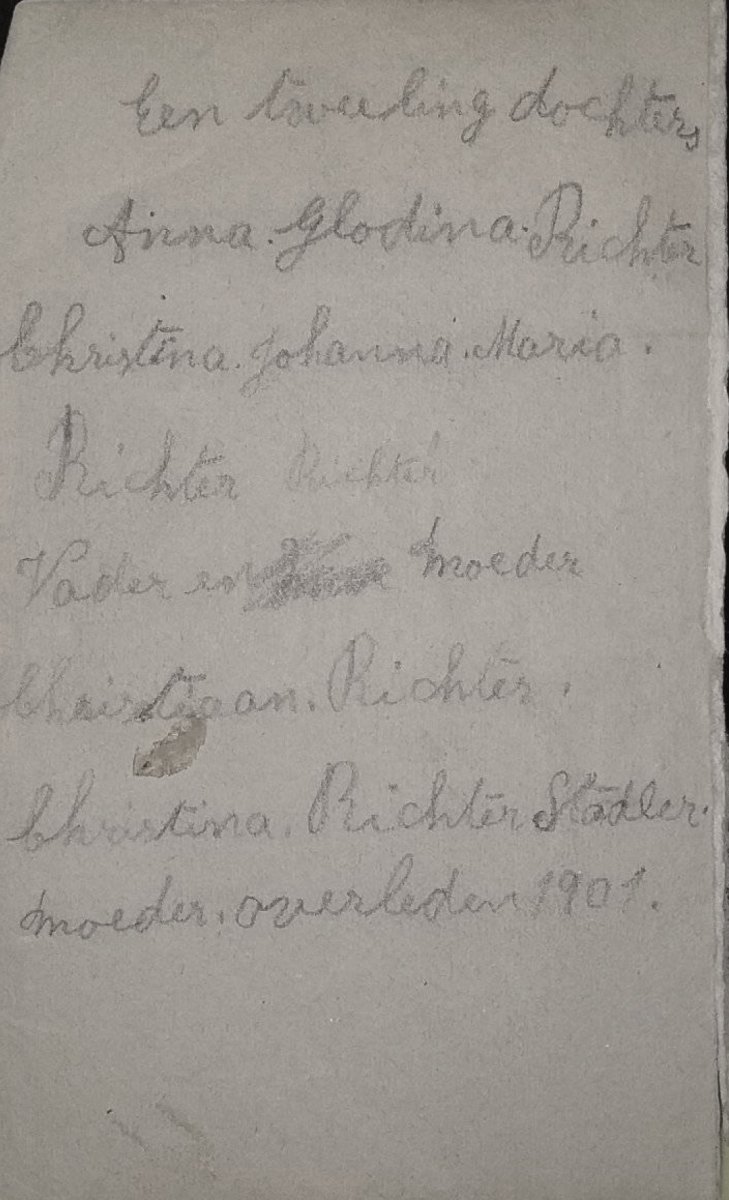 Een tweeling dochters
Anna. Glodina. Richter
Christina. Johanna. Maria.
Richter Richter
Vader en moeder
Christiaan. Richter.
Christina. Richter Stadler.
moeder. overleden 1901.